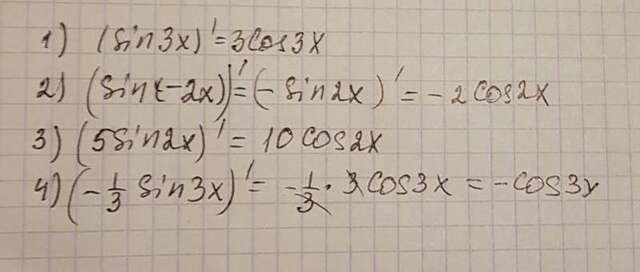 1) (sin3x)'=3cos3x
2) (sin(-2x))'=(-sin2x)'=-2cos2x
3) (5sin2x)'=10cos2x
4) (-1/3 sin3x)'=-1/3·3cos3x=-cos3x